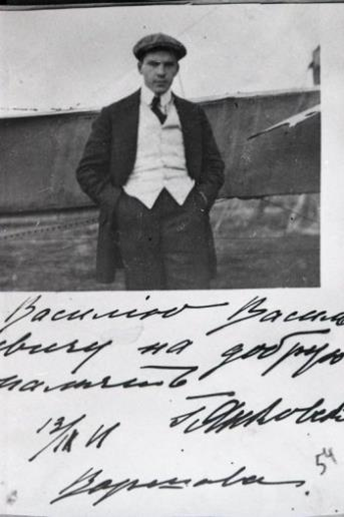 Василію Василь
евичу на добрую
память
Г. Янковск
13/IX 11
Варшава.
54